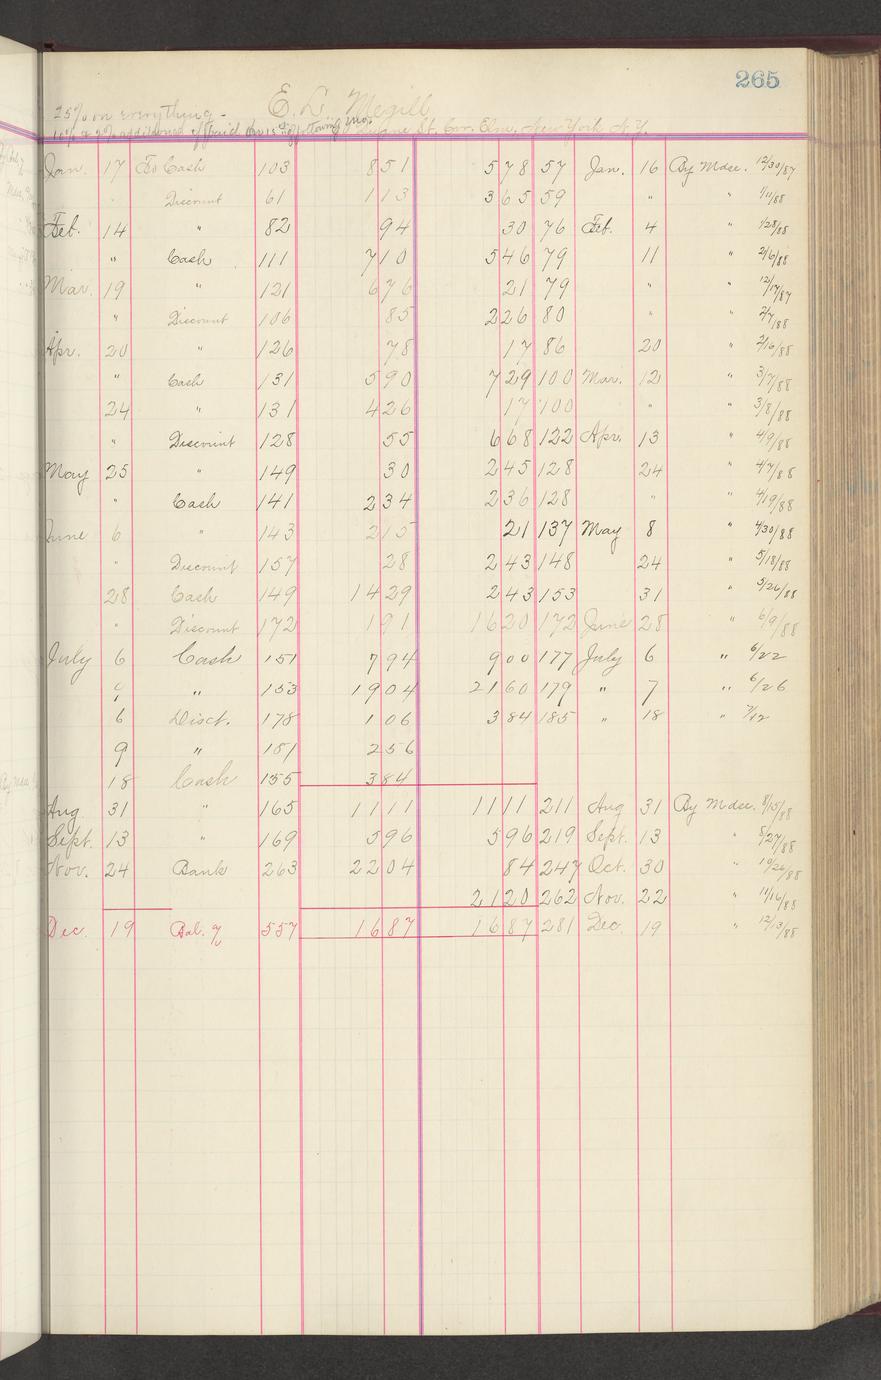 265
E. L. Megill
25% on everything -
10% & 2% additional if paid by 15th of following mo. Duane St. Cor. Elm, New York N.Y.
Jan. 17 To Cash 103 851 578 57 Jan. 16 By Mdse. 12/30/87
" Discount 61 113 365 59 " " 1/11/88
Feb. 14 " 82 94 30 76 Feb. 4 " 1/28/88
" Cash 111 710 546 79 11 " 2/6/88
Mar. 19 " 121 676 21 79 " " 12/17/87
" Discount 106 85 226 80 " " 2/7/88
Apr. 20 " 126 78 17 86 20 " 2/16/88
" Cash 131 590 729 100 Mar. 12 " 3/7/88
24 " 131 426 17 100 " " 3/8/88
" Discount 128 55 668 122 Apr. 13 " 4/9/88
May 25 " 149 30 245 128 24 " 4/7/88
" Cash 141 234 236 128 " " 4/19/88
June 6 " 143 215 21 137 May 8 " 4/30/88
" Discount 157 28 243 148 24 " 5/18/88
28 Cash 149 1429 243 153 31 " 5/26/88
" Discount 172 191 1620 172 June 28 " 6/9/88
July 6 Cash 151 794 900 177 July 6 " 6/22
9 " 153 1904 2160 179 " 7 " 6/26
6 Disct. 178 106 384 185 " 18 " 7/12
9 " 181 256
18 Cash 155 384
Aug 31 " 165 1111 1111 211 Aug 31 By Mdse. 8/15/88
Sept. 13 " 169 596 596 219 Sept. 13 " 8/27/88
Nov. 24 Bank 263 2204 84 247 Oct. 30 " 10/26/88
2120 262 Nov. 22 " 11/16/88
Dec. 19 Bal. % 557 1687 1687 281 Dec. 19 " 12/13/88